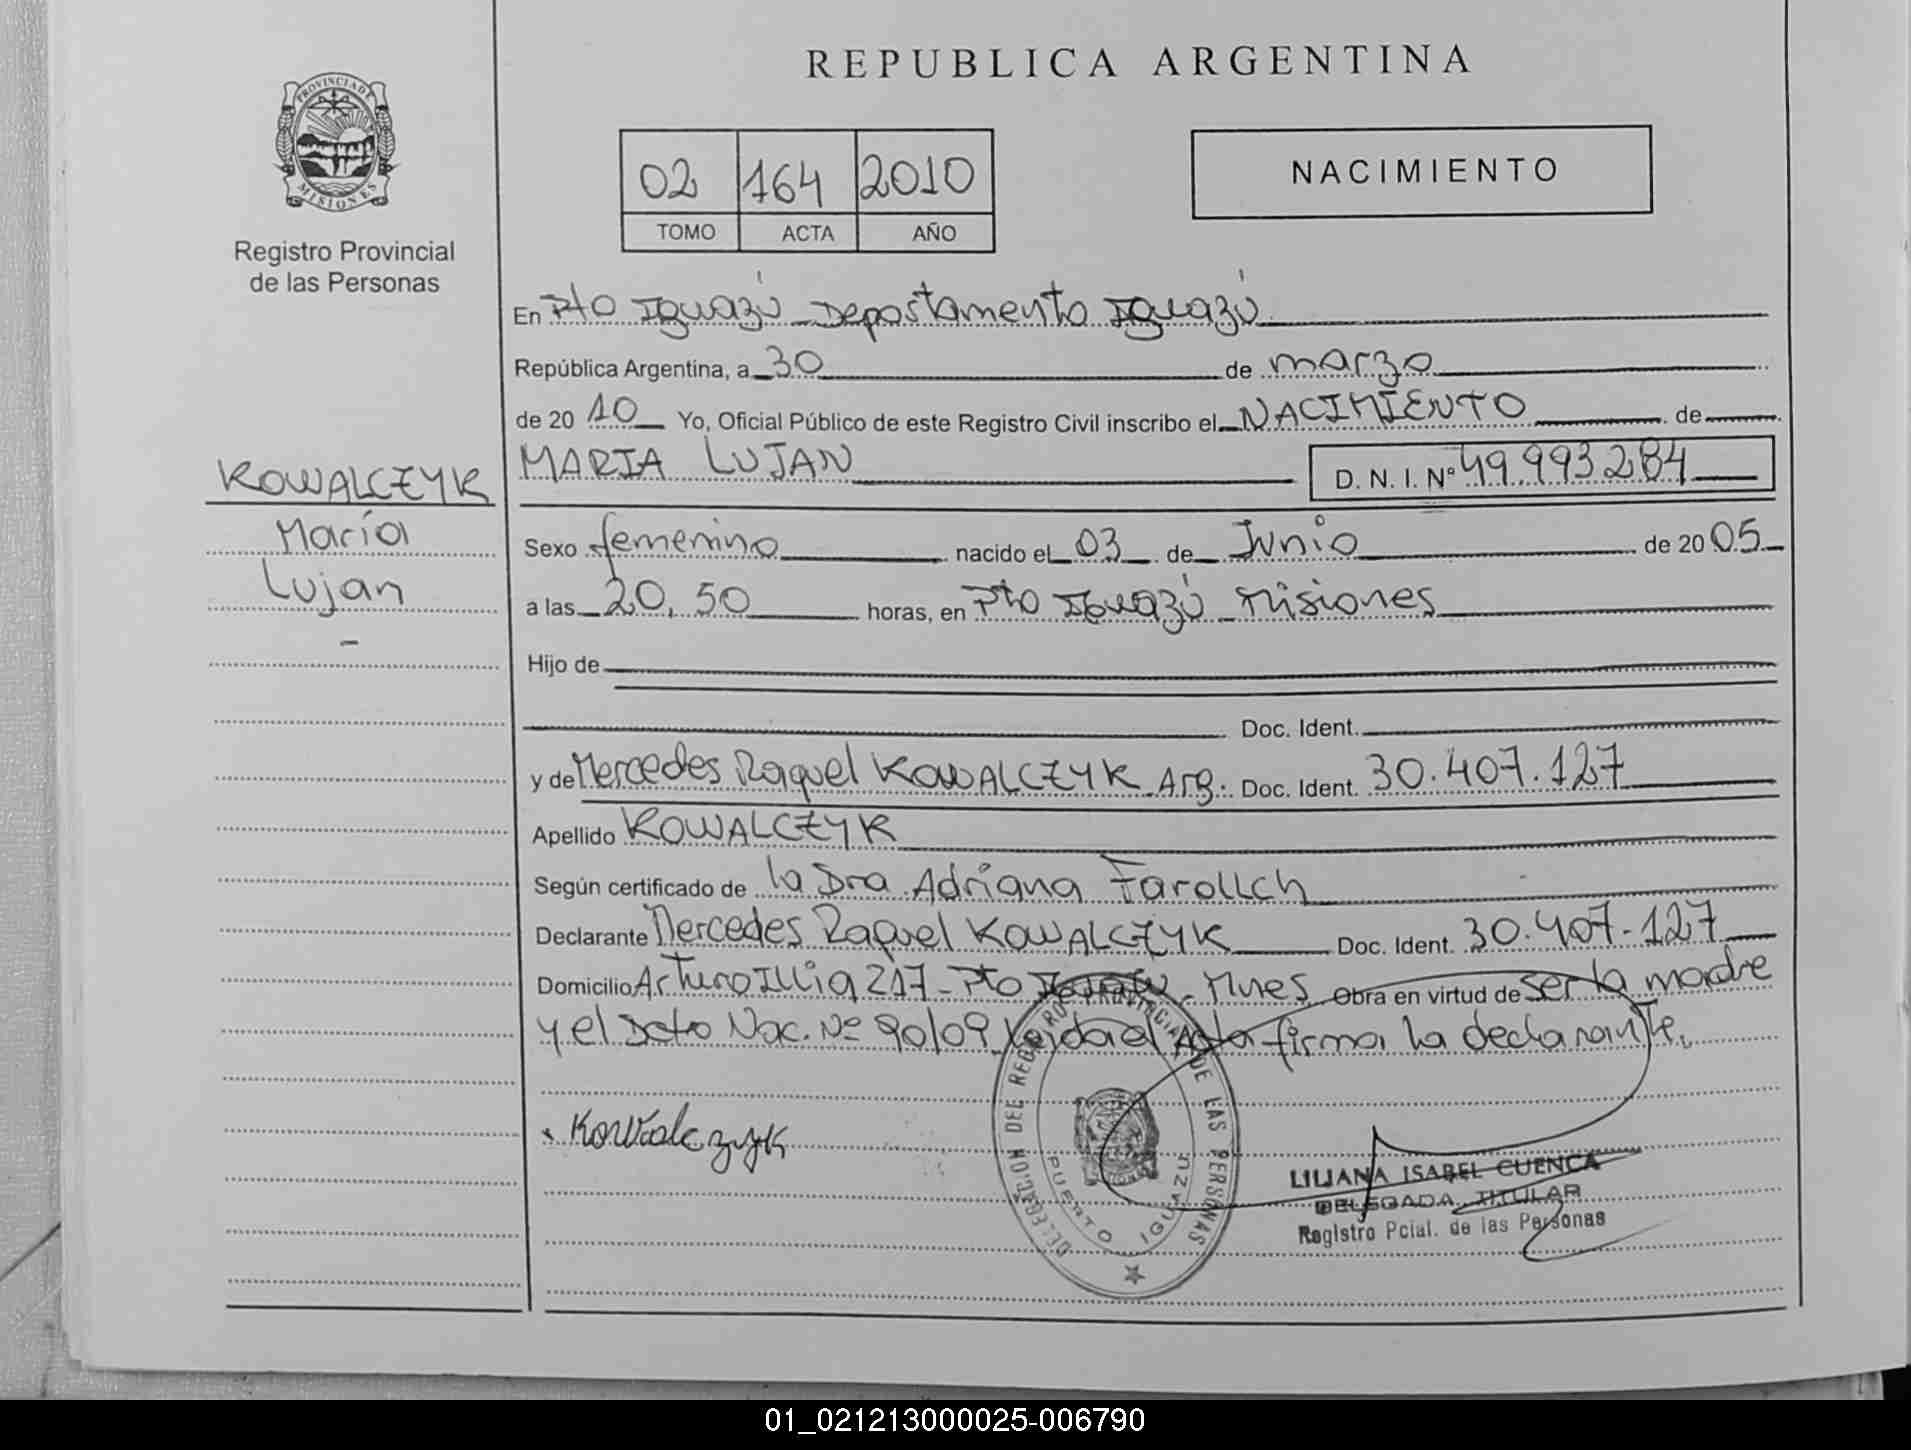 REPUBLICA ARGENTINA
PROVINCIA DE
MISIONES
Registro Provincial
de las Personas
02 164 2010
TOMO ACTA AÑO
NACIMIENTO
En Pto Iguazú - Departamento Iguazú
República Argentina, a 30 de marzo
de 20 10 Yo, Oficial Público de este Registro Civil inscribo el NACIMIENTO de
MARIA LUJAN D. N. I. Nº 49.993.284
KOWALCZYK
María
Lujan
-
Sexo femenino nacido el 03 de Junio de 20 05
a las 20,50 horas, en Pto Iguazú - Misiones
Hijo de
Doc. Ident.
y de Mercedes Raquel KOWALCZYK Arg. Doc. Ident. 30.407.127
Apellido KOWALCZYK
Según certificado de la Dra Adriana
Declarante Mercedes Raquel KOWALCZYK Doc. Ident. 30.407.127
Domicilio Arturo Illia 217 - Pto Iguazú - Mnes Obra en virtud de ser la madre
y el Dcto Nac. Nº 90/09 Leída el Acta firma la declarante.
Kowalczyk
DELEGACION DEL REGISTRO PROVINCIAL DE LAS PERSONAS
PUERTO IGUAZU
LILIANA ISABEL CUENCA
DELEGADA TITULAR
Registro Pcial. de las Personas
01_021213000025-006790